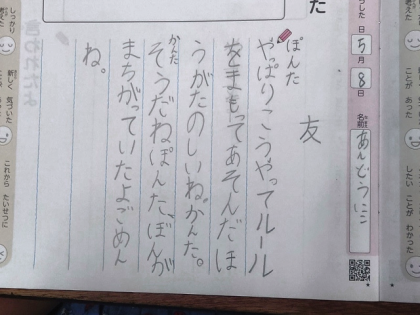 た
した日
5月
8日
名前 あんどうにこ
友
ぽんた
やっぱりこうやってルール
をまもってあそんだほ
うがたのしいね。かんた。
かんた
そうだねぽんた、ぼんが
まちがっていたよごめん
ね。
しっかり考えた
新しく気づいた
これからたいせつに
ことがあった
したいことがわかった